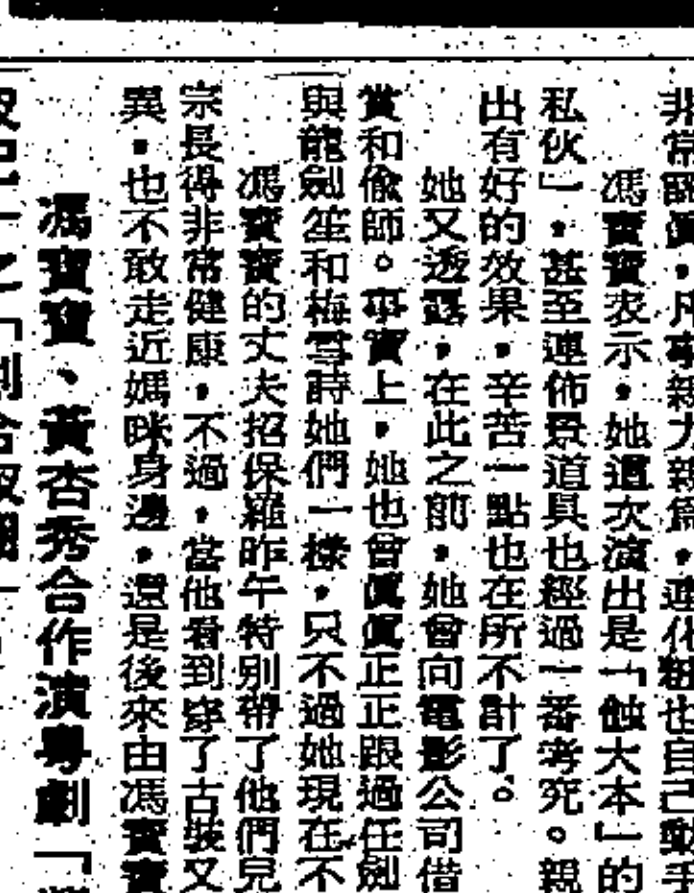 非常認真，凡事親力親為，連化粧也自己動手
馮寶寶表示，她這次演出是「蝕大本」的
私伙」，甚至連佈景道具也經過一番考究。親
出有好的效果，辛苦一點也在所不計了。
她又透露，在此之前，她曾向電影公司借
賞和偷師。事實上，她也曾真真正正跟過任劍
與龍劍笙和梅雪詩她們一樣，只不過她現在不
馮寶寶的丈夫招保羅昨午特別帶了他們兒
宗長得非常健康，不過，當他看到穿了古裝又
異，也不敢走近媽咪身邊，還是後來由馮寶寶
馮寶寶、黃杏秀合作演粵劇「